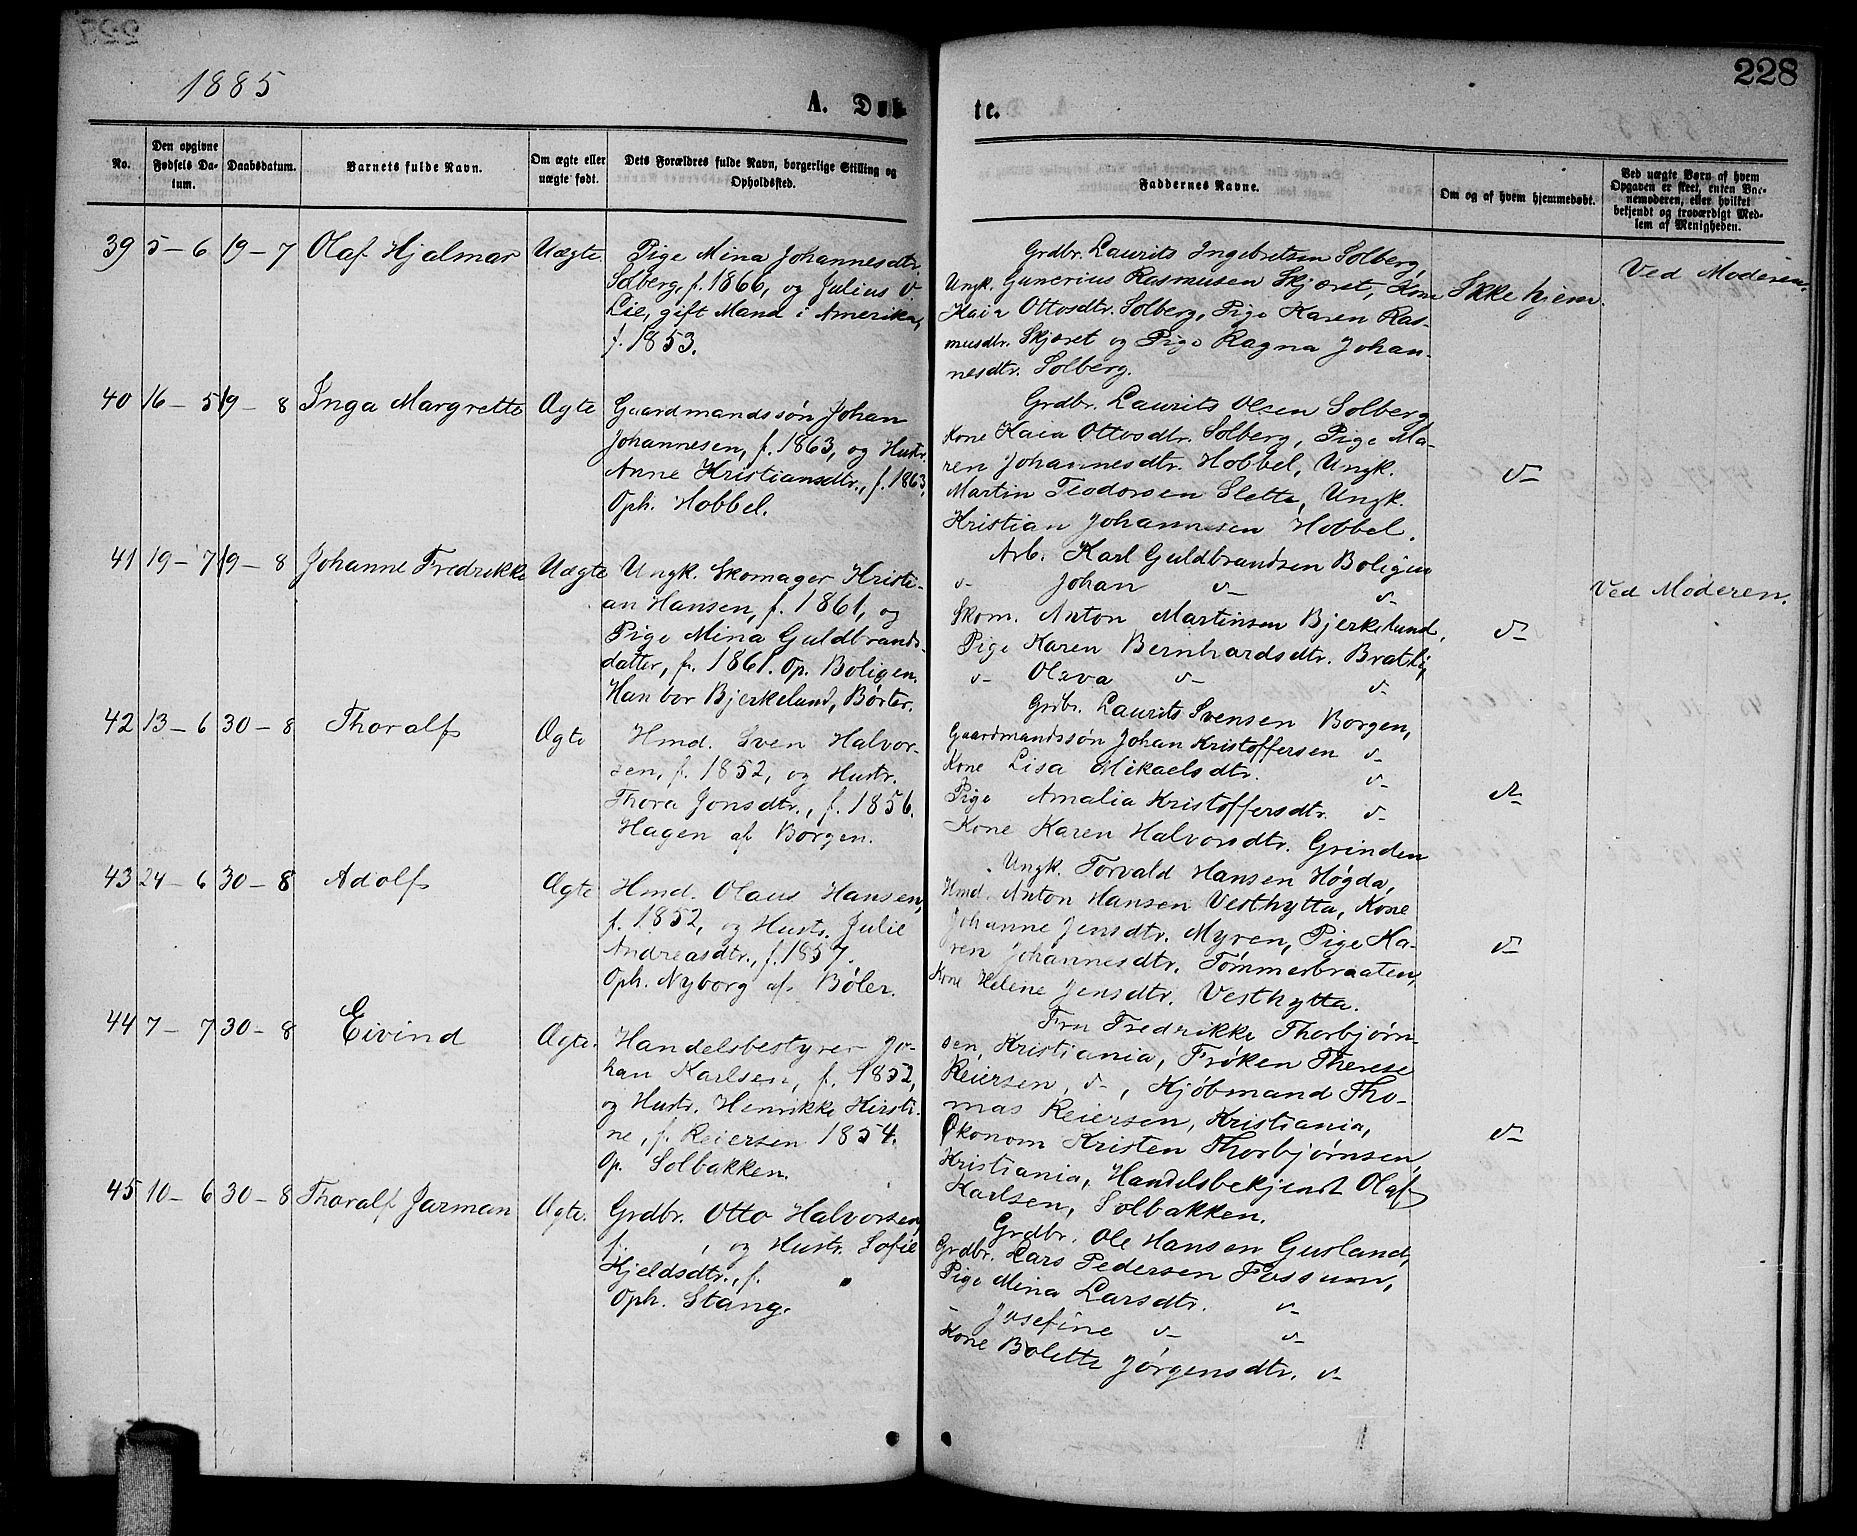 1885
228
A. Døb
te.
No.
Den opgivne Fødsels Datum.
Daabsdatum.
Barnets fulde Navn.
Om ægte eller uægte født.
Dets Forældres fulde Navn, borgerlige Stilling og Opholdssted.
Faddernes Navne.
Om og af hvem hjemmedøbt.
Ved uægte Børn af hvem Opgaven er skeet, enten Barnemoderen, eller hvilket bekjendt og troværdigt Medlem af Menigheden.
39 5 – 6 19 – 7 Olaf Hjalmar Uægte
Pige Mina Johannesdtr.
Solberg, f. 1866, og Julius O.
Lie, gift Mand i Amerika,
f. 1853.
Grdbr. Laurits Ingebretsen Solberg,
Ungk. Gunerius Rasmusen Skjæret, Kone
Kaia Ottosdtr. Solberg, Pige Karen Ras-
musdtr. Skjæret og Pige Ragna Johan-
nesdtr. Solberg.
Ikke hjem.
Ved Moderen.
40 16 – 5 19 – 8 Inga Margrette Ægte
Gaardmandssøn Johan
Johannesen, f. 1863, og Hustr.
Anne Kristiansdtr., f. 1863.
Oph. Hobbel.
Grdbr. Laurits Olsen Solberg,
Kone Kaia Ottosdtr. Solberg, Pige Ma-
ren Johannesdtr. Hobbel, Ungk.
Martin Teodorsen Sletta, Ungk.
Kristian Johannesen Hobbel.
v–
41 19 – 7 19 – 8 Johanne Fredrikke Uægte
Ungk. Skomager Kristi-
an Hansen, f. 1861, og
Pige Mina Guldbrands-
datter, f. 1861. Op. Boligen.
Han bor Bjerkelund, Børter.
Arb. Karl Guldbrandsen Boligen
v– Johan v– v–
Skom. Anton Martinsen Bjerkelund,
Pige Karen Bernhardsdtr. Bratlie,
v– Olava v– v–
v–
Ved Moderen.
42 13 – 6 30 – 8 Thoralf Ægte
Hmd. Sven Halvor-
sen, f. 1852, og Hustr.
Thora Jonsdtr., f. 1856.
Hagen af Borgen.
Grdbr. Laurits Svensen Borgen,
Gaardmandssøn Johan Kristoffersen v–
Kone Lisa Mikaelsdtr. v–
Pige Amalia Kristoffersdtr. v–
Kone Karen Halvorsdtr. Grinden
v–
43 24 – 6 30 – 8 Adolf Ægte
Hmd. Olaus Hansen,
f. 1852, og Hustr. Julie
Andreasdtr., f. 1857.
Oph. Nyborg af Bøler.
Ungk. Torvald Hansen Høgda,
Hmd. Anton Hansen Vesthytta, Kone
Johanne Jensdtr. Myren, Pige Ka-
ren Johannesdtr. Tømmerbraaten,
Kone Helene Jensdtr. Vesthytta.
v–
44 7 – 7 30 – 8 Eivind Ægte.
Handelsbestyrer Jo-
han Karlsen, f. 1852,
og Hustr. Henrikke Kirsti-
ne, f. Reiersen 1854.
Op. Solbakken.
Fru Fredrikke Thorbjørn-
sen, Kristiania, Frøken Therese
Reiersen, v–, Kjøbmand Tho-
mas Reiersen, Kristiania,
Økonom Kristen Thorbjørnsen,
Kristiania, Handelsbekjendt Olaf
Karlsen, Solbakken.
v–
45 10 – 6 30 – 8 Thoralf Jarman Ægte.
Grdbr. Otto Halvorsen,
f. , og Hustr. Sofie
Kjeldsdtr., f.
Oph. Stang.
Grdbr. Ole Hansen Gusland,
Grdbr. Lars Pedersen Fossum,
Pige Mina Larsdtr. v–
– Josefine v– v–
Kone Bolette Jørgensdtr. v–